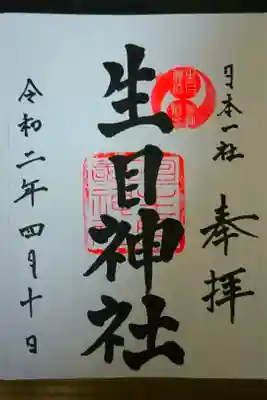 奉拝
日本一社
生目神社
令和二年四月十日